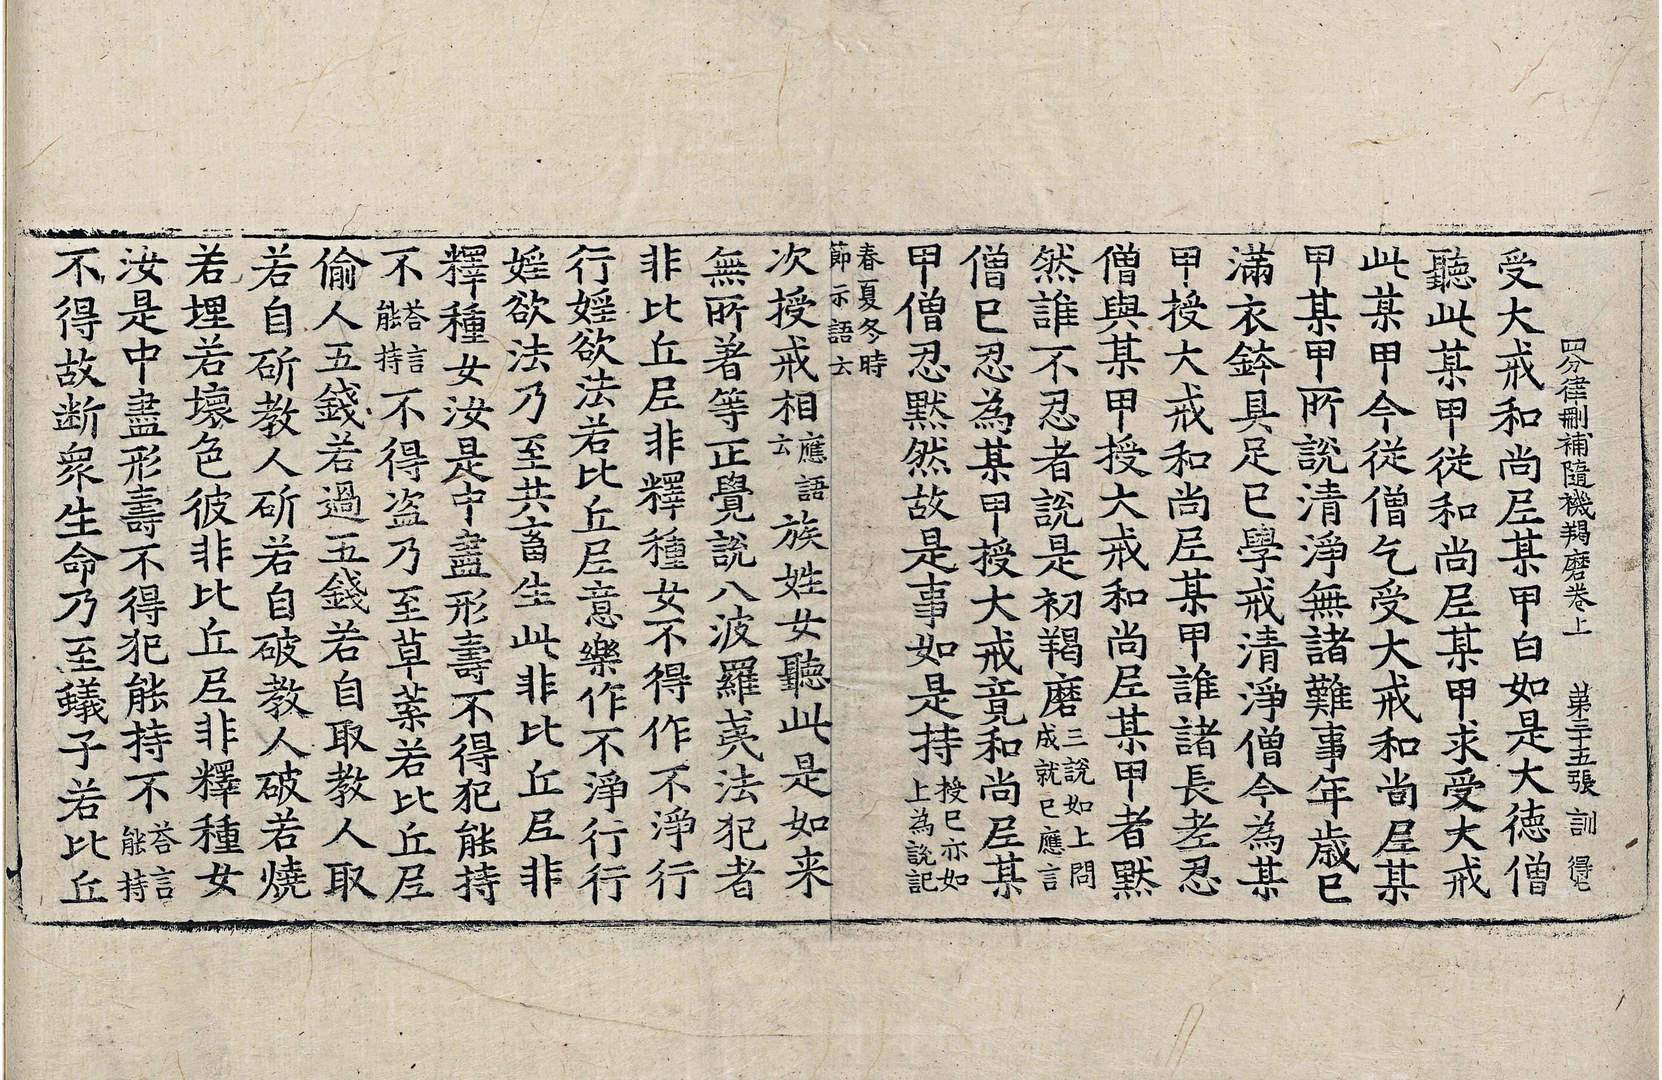 四分律刪補隨機羯磨卷上　第三十五張　訓　得
受大戒和尚尼某甲白如是大徳僧
聽此某甲從和尚尼某甲求受大戒
此某甲今從僧乞受大戒和尚尼某
甲某甲所説清淨無諸難事年歲已
滿衣鉢具足已學戒清淨僧今為某
甲授大戒和尚尼某甲誰諸長老忍
僧與某甲授大戒和尚尼某甲者黙
然誰不忍者説是初羯磨三説如上問成就已應言
僧已忍為某甲授大戒竟和尚尼某
甲僧忍黙然故是事如是持授已亦如上為説記
春夏冬時節示語云
次授戒相應語云族姓女聽此是如来
無所著等正覺説八波羅夷法犯者
非比丘尼非釋種女不得作不淨行
行婬欲法若比丘尼意樂作不淨行行
婬欲法乃至共畜生此非比丘尼非
釋種女汝是中盡形壽不得犯能持
不荅言能持不得盜乃至草葉若比丘尼
偷人五錢若過五錢若自取教人取
若自斫教人斫若自破教人破若燒
若埋若壞色彼非比丘尼非釋種女
汝是中盡形壽不得犯能持不荅言能持
不得故断衆生命乃至蟻子若比丘